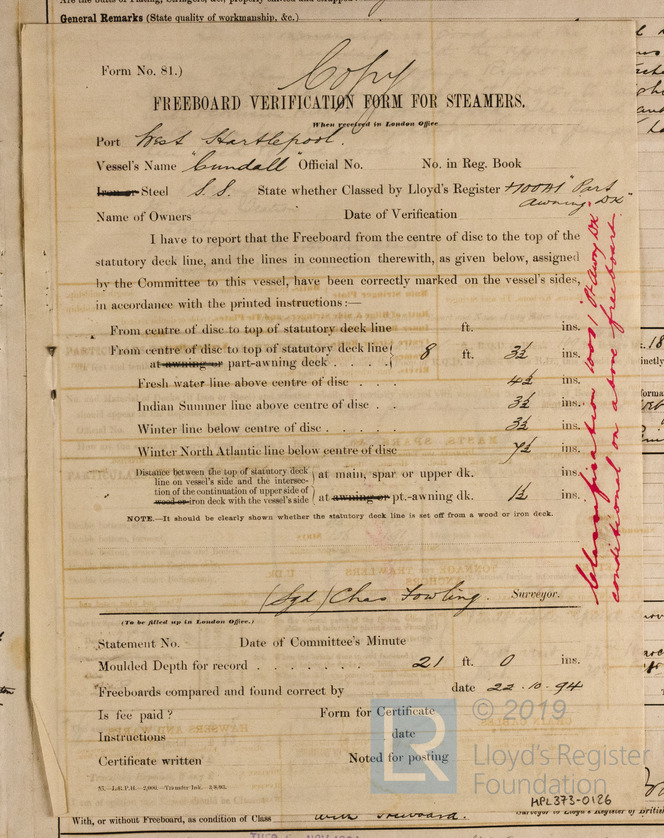 General Remarks (State quality of workmanship, &c.)
Form No. 81.)
Copy
FREEBOARD VERIFICATION FORM FOR STEAMERS.
When received in London Office
Port West Hartlepool.
Vessel's Name "Cundall" Official No. No. in Reg. Book
Iron or Steel S.S. State whether Classed by Lloyd's Register +100A1 "Part
Awning Dk"
Name of Owners Date of Verification
I have to report that the Freeboard from the centre of disc to the top of the
statutory deck line, and the lines in connection therewith, as given below, assigned
by the Committee to this vessel, have been correctly marked on the vessel's sides,
in accordance with the printed instructions:—
From centre of disc to top of statutory deck line ft. ins.
From centre of disc to top of statutory deck line
at awning or part-awning deck . . . . 8 ft. 3½ ins.
Fresh water line above centre of disc . . . 4½ ins.
Indian Summer line above centre of disc . . 3½ ins.
Winter line below centre of disc . . . . . 3½ ins.
Winter North Atlantic line below centre of disc 7½ ins.
Distance between the top of statutory deck
line on vessel's side and the intersec-
tion of the continuation of upper side of
wood or iron deck with the vessel's side
at main, spar or upper dk. ins.
at awning or pt.-awning dk. 1½ ins.
NOTE.—It should be clearly shown whether the statutory deck line is set off from a wood or iron deck.
Classification 100A1, Pt Awng Dk
conditional on above freeboard.
(Sgd) Chas Fowling. Surveyor.
(To be filled up in London Office.)
Statement No. Date of Committee's Minute
Moulded Depth for record . . . . . . . 21 ft. 0 ins.
Freeboards compared and found correct by date 22.10.94
Is fee paid? Form for Certificate
Instructions date
Certificate written Noted for posting
© 2019
LR
Lloyd's Register
Foundation
HPL373-0126
With, or without Freeboard, as condition of Class with freeboard.